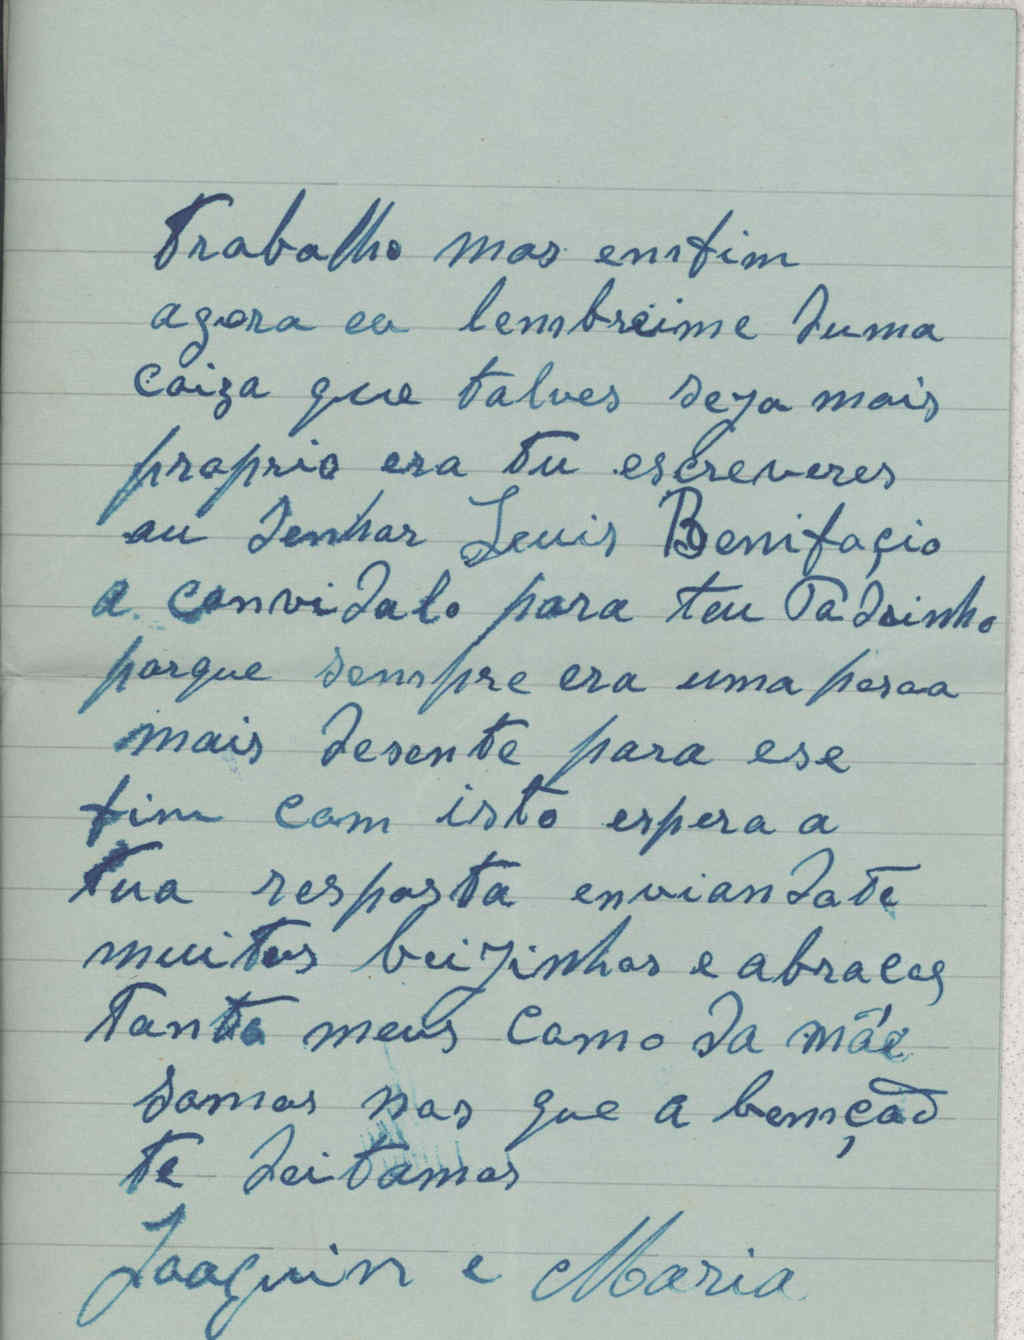 Trabalho mas emfim
agora eu lembreime duma
coiza que talves seja mais
proprio era tu escreveres
au Senhor Luis Bonifaçio
a convidalo para teu Padrinho
porque sempre era uma pesoa
mais desente para ese
fim com isto espera a
tua resposta enviandote
muitos beijinhos e abraços
tanto meus como da mãe
somos nos que a bemção
te deitamos
Joaquim e Maria